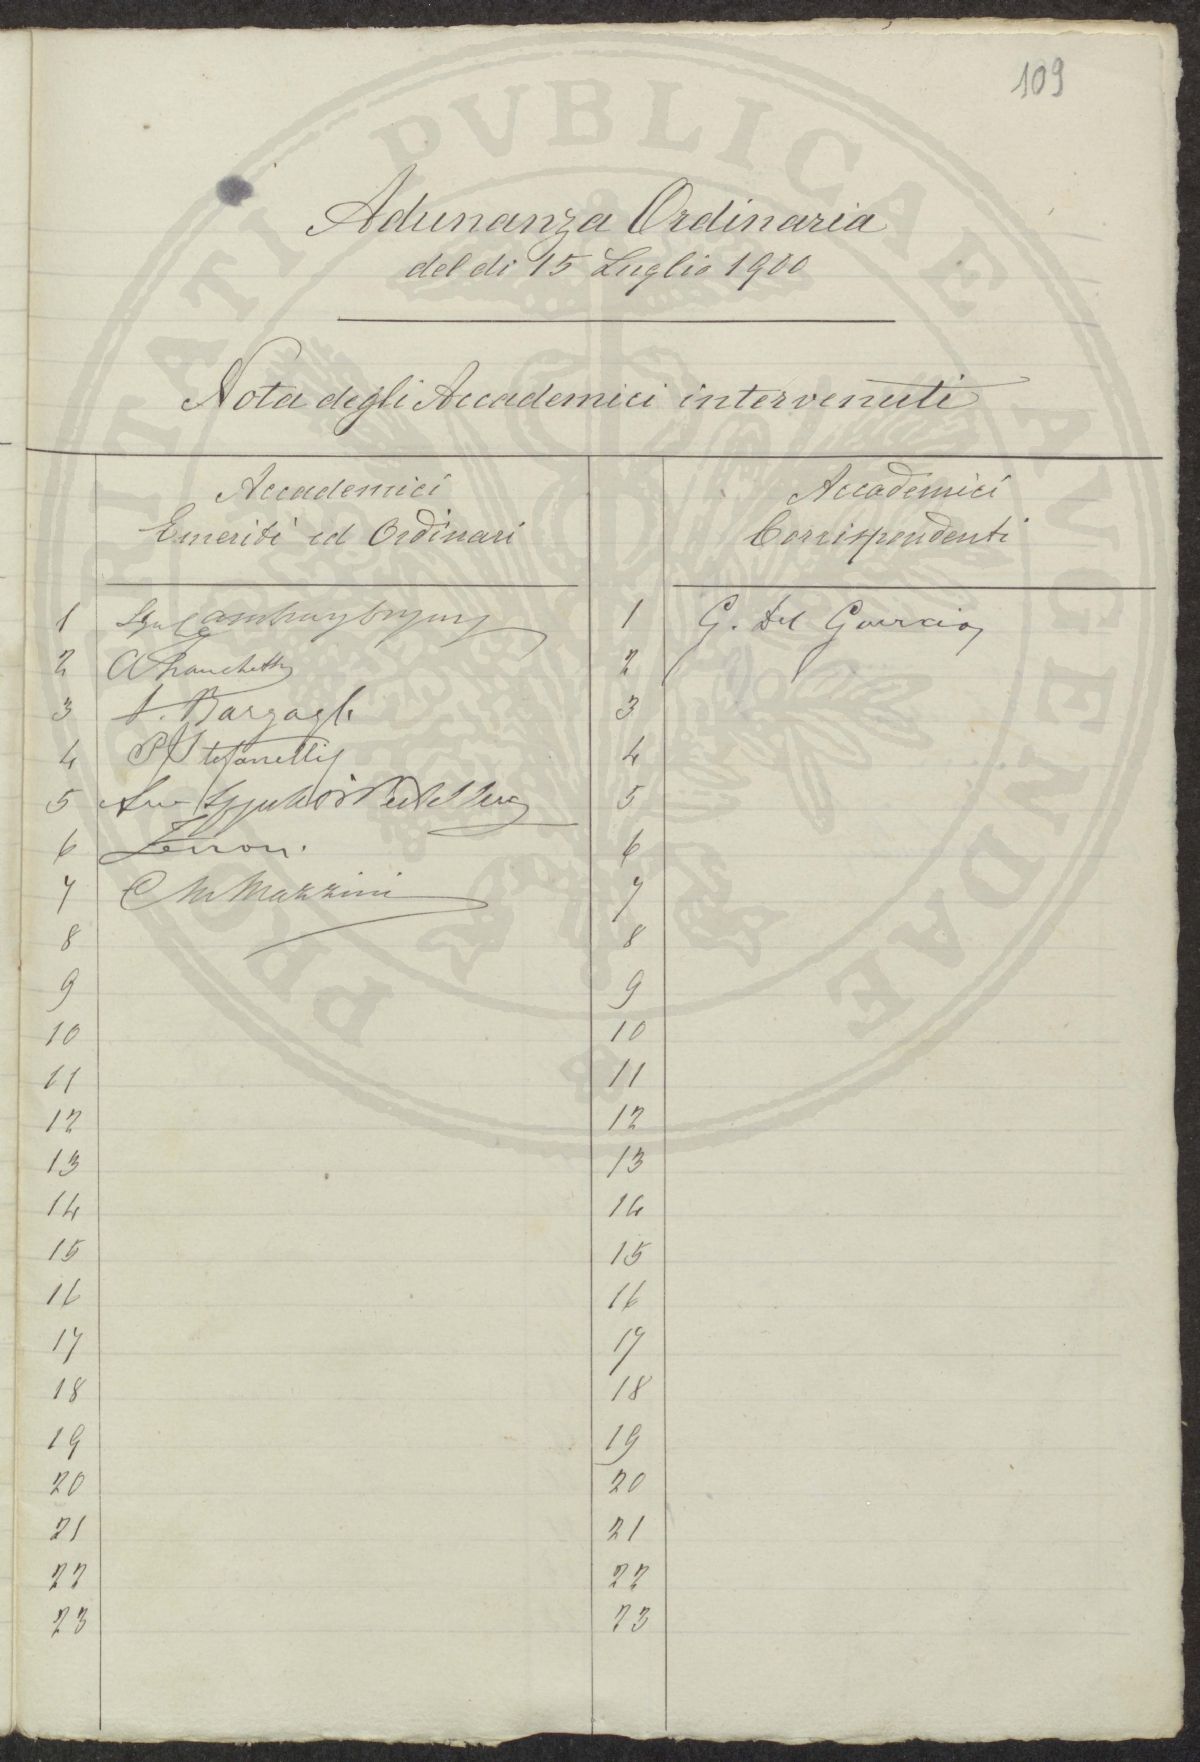 109
PROSPERITATI PVBLICAE AVGENDAE
Adunanza Ordinaria
del dì 15 Luglio 1900
Nota degli Accademici intervenuti
Accademici
Emeriti ed Ordinari
Accademici
Corrispondenti
1
1 G. Del Guercio
2 A Franchetti
2
3 P. Bargagli
3
4 P Stefanelli
4
5
5
6
6
7 C M Mazzini
7
8 8
9 9
10 10
11 11
12 12
13 13
14 14
15 15
16 16
17 17
18 18
19 19
20 20
21 21
22 22
23 23